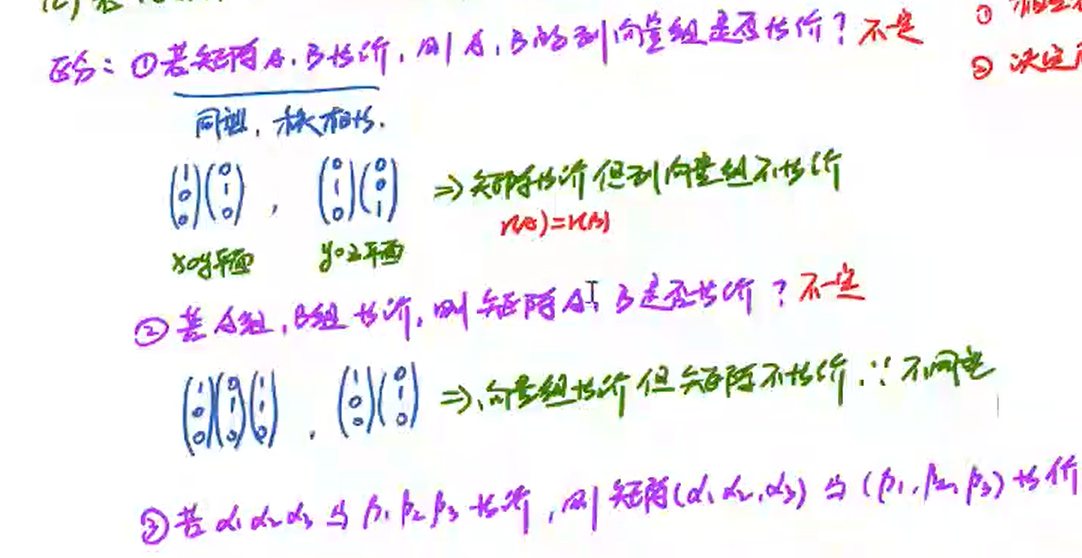 区分：①若矩阵A，B等价，则A，B的列向量组是否等价？不一定
同型，秩相等.
(1 0 0)(0 1 0)，(0 1 0)(0 0 1) ⇒矩阵等价但列向量组不等价
r(A)=r(B)
xoy平面 yoz平面
②若A组，B组等价，则矩阵A，B是否等价？不一定
(1 0 0)(0 1 0)(1 1 0)，(1 0 0)(0 1 0) ⇒向量组等价但矩阵不等价，∵不同型
③若α₁α₂α₃与β₁β₂β₃等价，则矩阵(α₁α₂，α₃)与(β₁，β₂，β₃)等价
①
② 决定